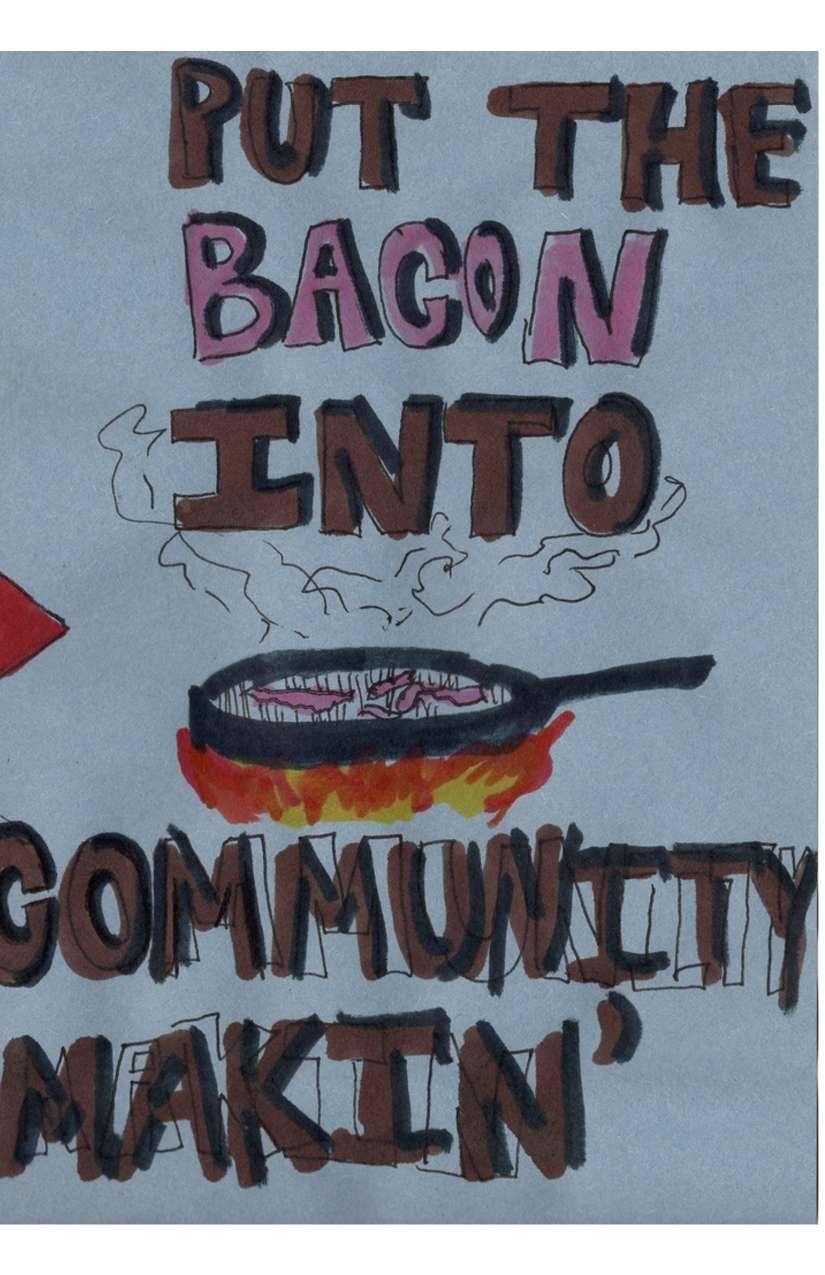 PUT THE
BACON
INTO
COMMUNITY
MAKIN'